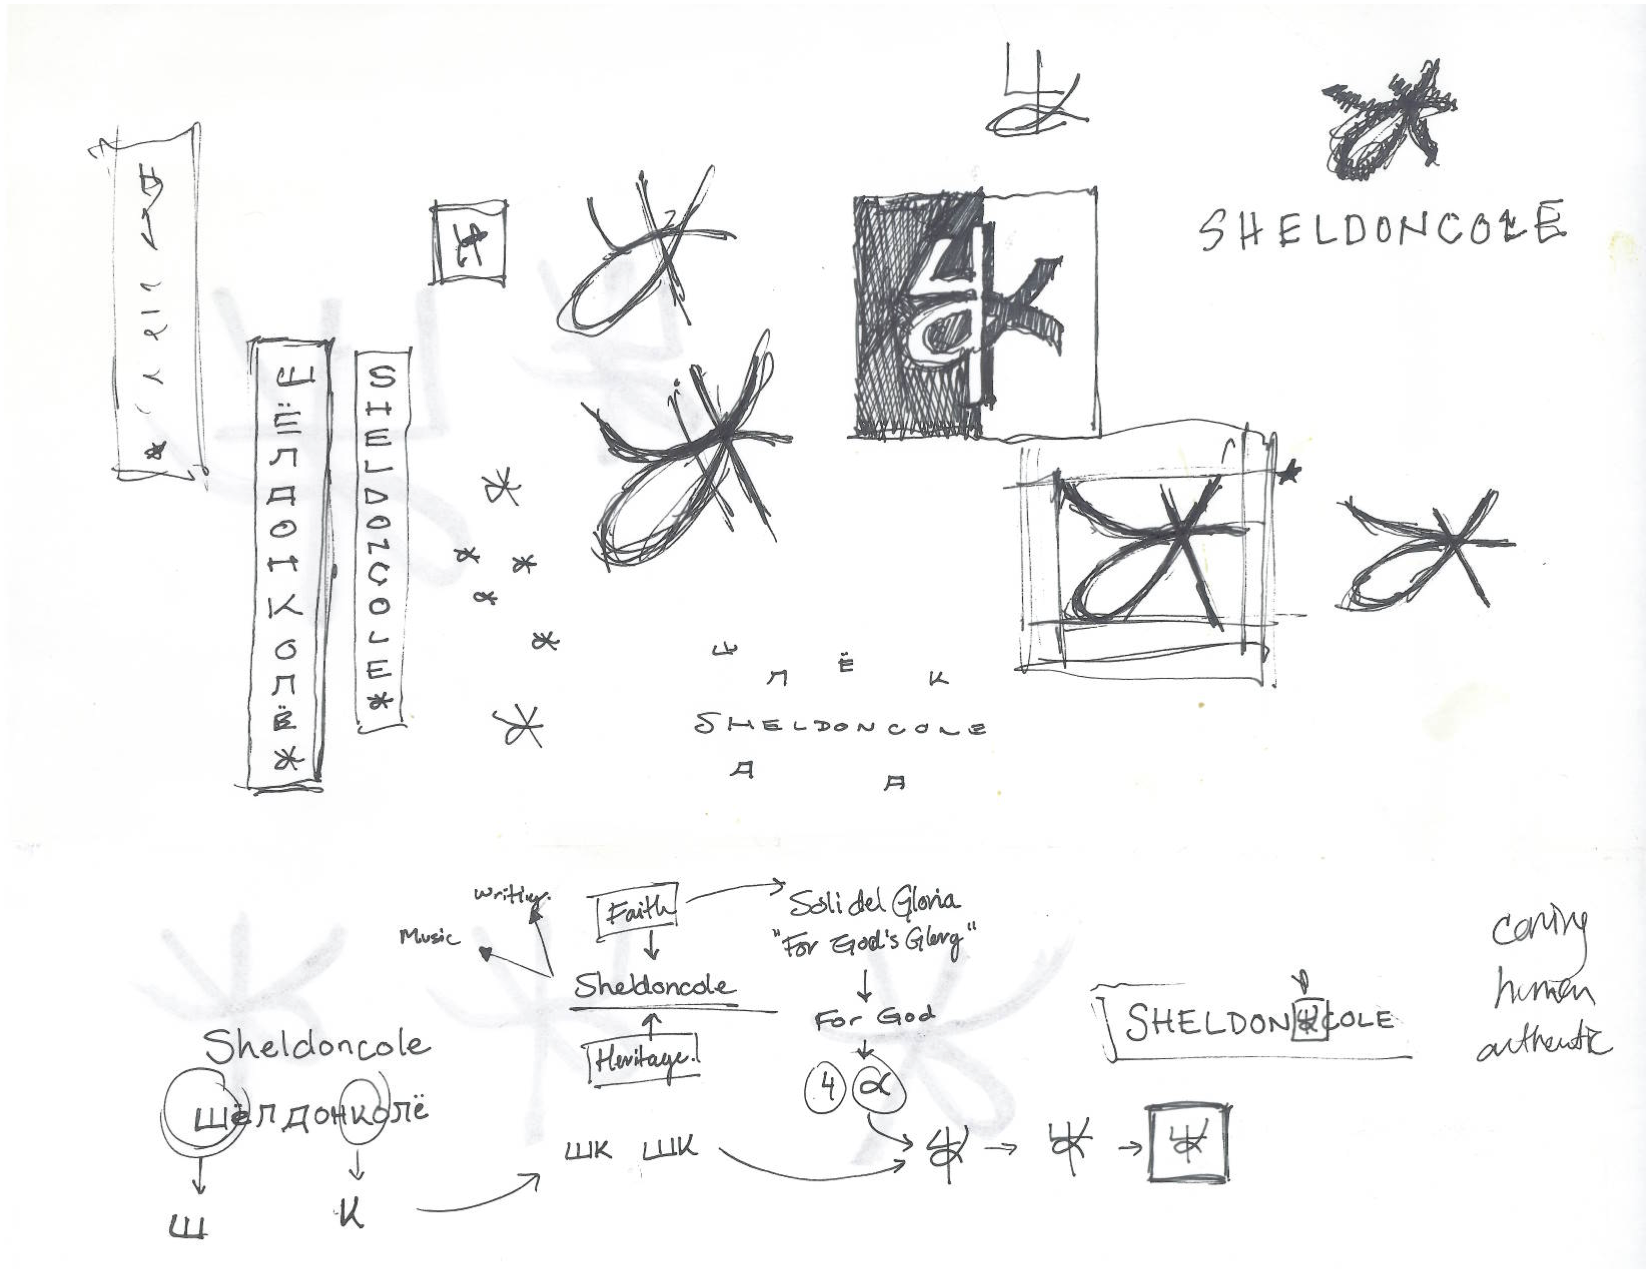 SHELDONCOLE
ШЁЛДОНКОЛЁ*
SHELDONCOLE*
Ш Л Ё К
SHELDONCOLE
Д Д
Writing.
Music
Faith
Sheldoncole
Heritage.
Soli del Gloria
"For God's Glory"
For God
4 α
SHELDON COLE
caring
human
authentic
Sheldoncole
шёлдонколё
Ш К
ШК ШК